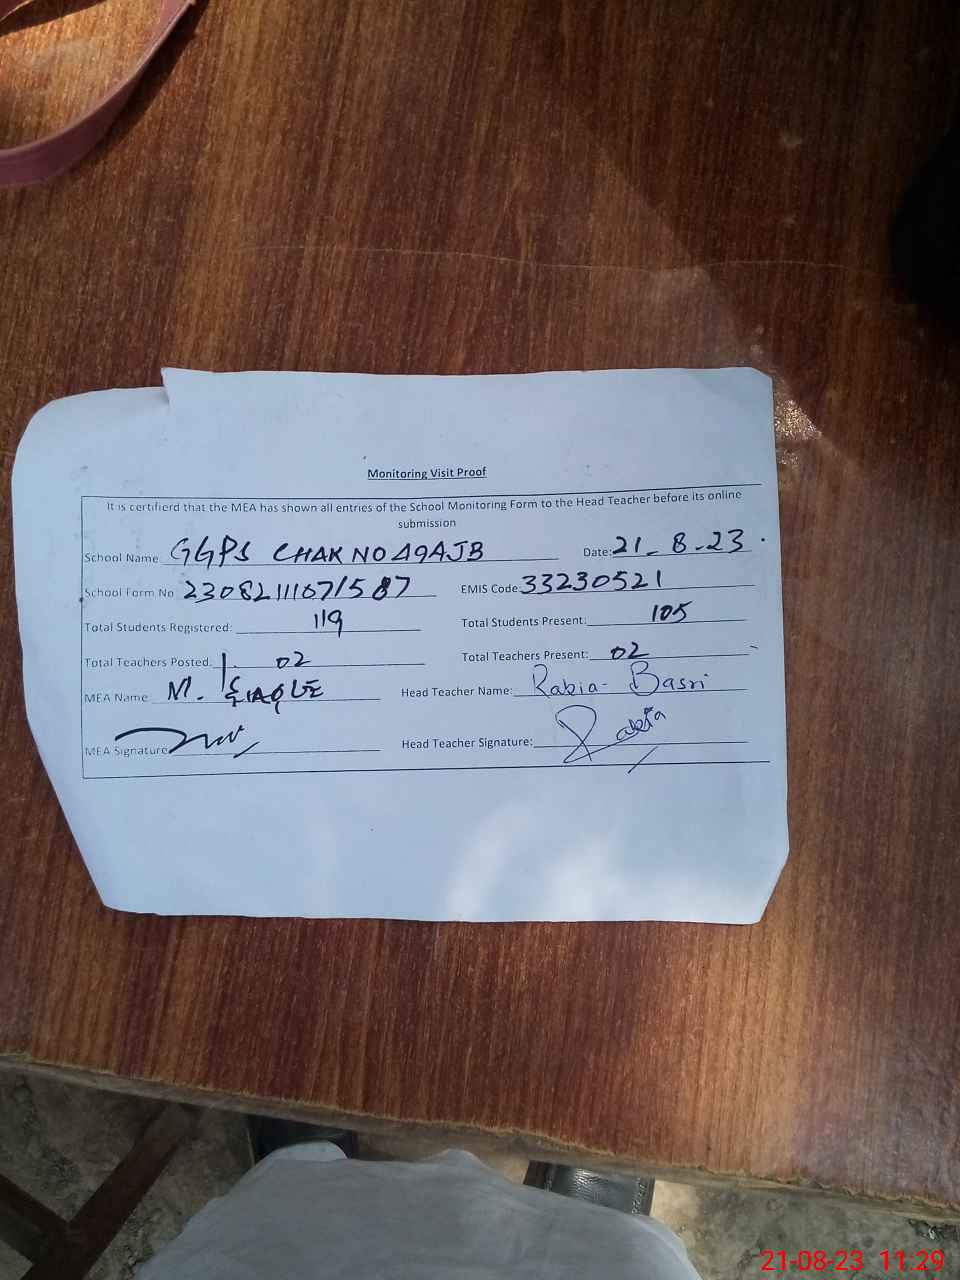 Monitoring Visit Proof
It is certifierd that the MEA has shown all entries of the School Monitoring Form to the Head Teacher before its online
submission
School Name: GGPS CHAK NO 49AJB Date: 21-8-23.
School Form No 2308211167/587 EMIS Code: 33230521
Total Students Registered: 119 Total Students Present: 105
Total Teachers Posted: 02 Total Teachers Present: 02
MEA Name: M. Head Teacher Name: Rabia- Basri
MEA Signature Head Teacher Signature: Rabia
21-08-23 11:29